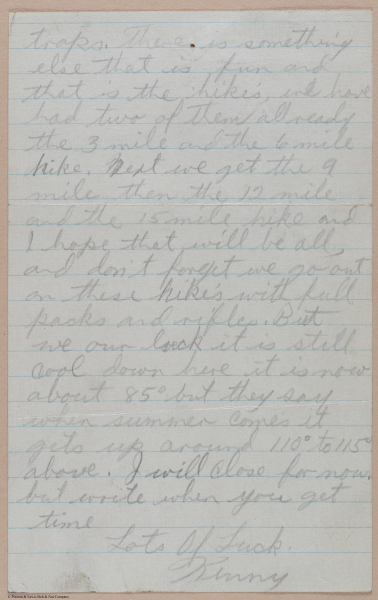 traps. There is something
else that is fun and
that is the hikes, we have
had two of them allready
the 3 mile and the 6 mile
hike. Next we get the 9
mile then the 12 mile
and the 15 mile hike and
I hope that will be all,
and don't forget we go out
on these hike's with full
packs and rifles. But
we our luck it is still
cool down here it is now
about 85° but they say
when summer comes it
gets up around 110° to 115°
above. I will close for now.
but write when you get
time
Lots Of Luck.
Kenny